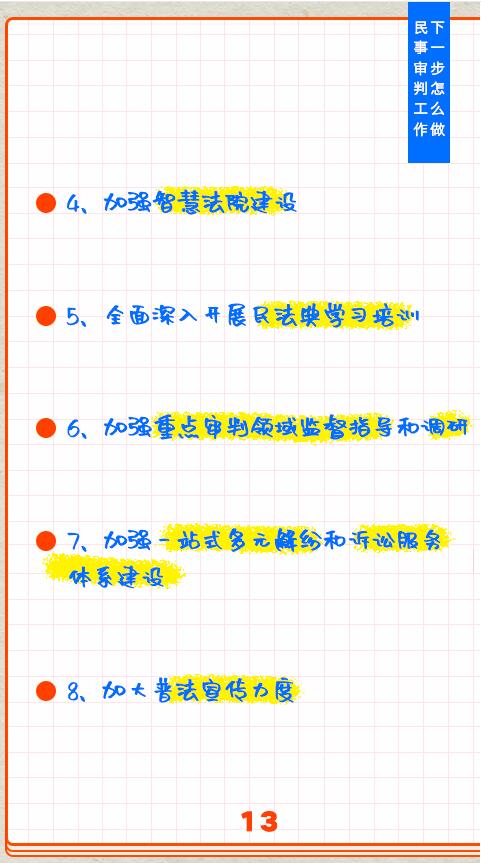 下一步怎么做
民事审判工作
4、加强智慧法院建设
5、全面深入开展民法典学习培训
6、加强重点审判领域监督指导和调研
7、加强一站式多元解纷和诉讼服务
体系建设
8、加大普法宣传力度
13